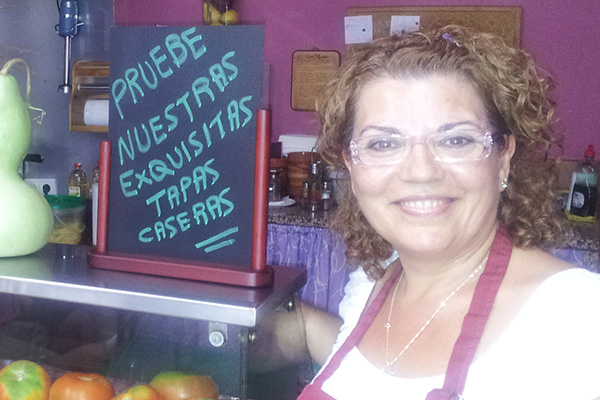 PRUEBE
NUESTRAS
EXQUISITAS
TAPAS
CASERAS